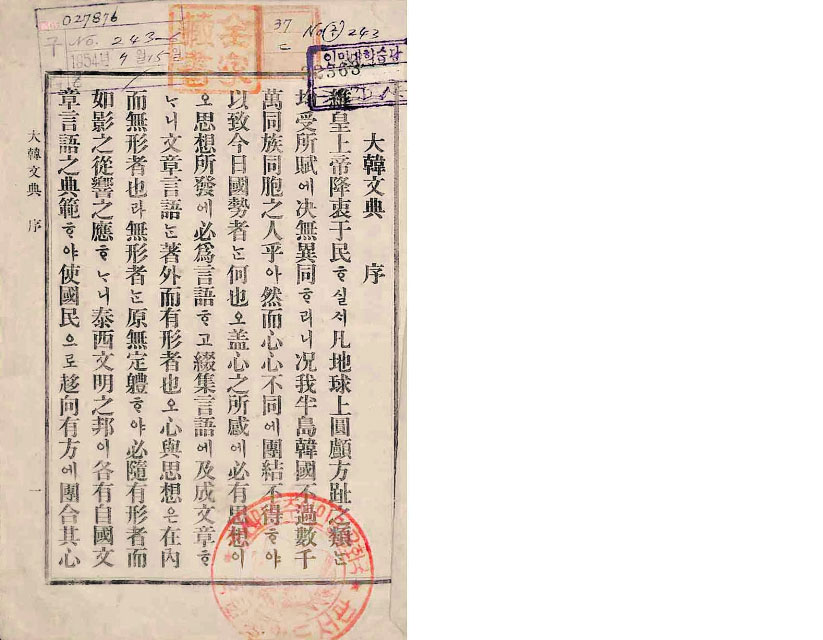 027876
No. 243-6
1954년 4월 15일
37
No(子) 243
大韓文典 序
維皇上帝降衷于民ᄒᆞ실ᄉᆡ凡地球上圓顱方趾之類ᄂᆞᆫ
均受所賦에决無異同ᄒᆞ려니况我半島韓國不過數千
萬同族同胞之人乎아然而心心不同에團結不得ᄒᆞ야
以致今日國勢者ᄂᆞᆫ何也오盖心之所感에必有思想이
오思想所發에必爲言語ᄒᆞ고綴集言語에及成文章ᄒᆞ
ᄂᆞ니文章言語ᄂᆞᆫ著外而有形者也오心與思想은在內
而無形者也라無形者ᄂᆞᆫ原無定軆ᄒᆞ야必隨有形者而
如影之從響之應ᄒᆞᄂᆞ니泰西文明之邦이各有自國文
章言語之典範ᄒᆞ야使國民으로趍向有方에團合其心
大韓文典 序 一